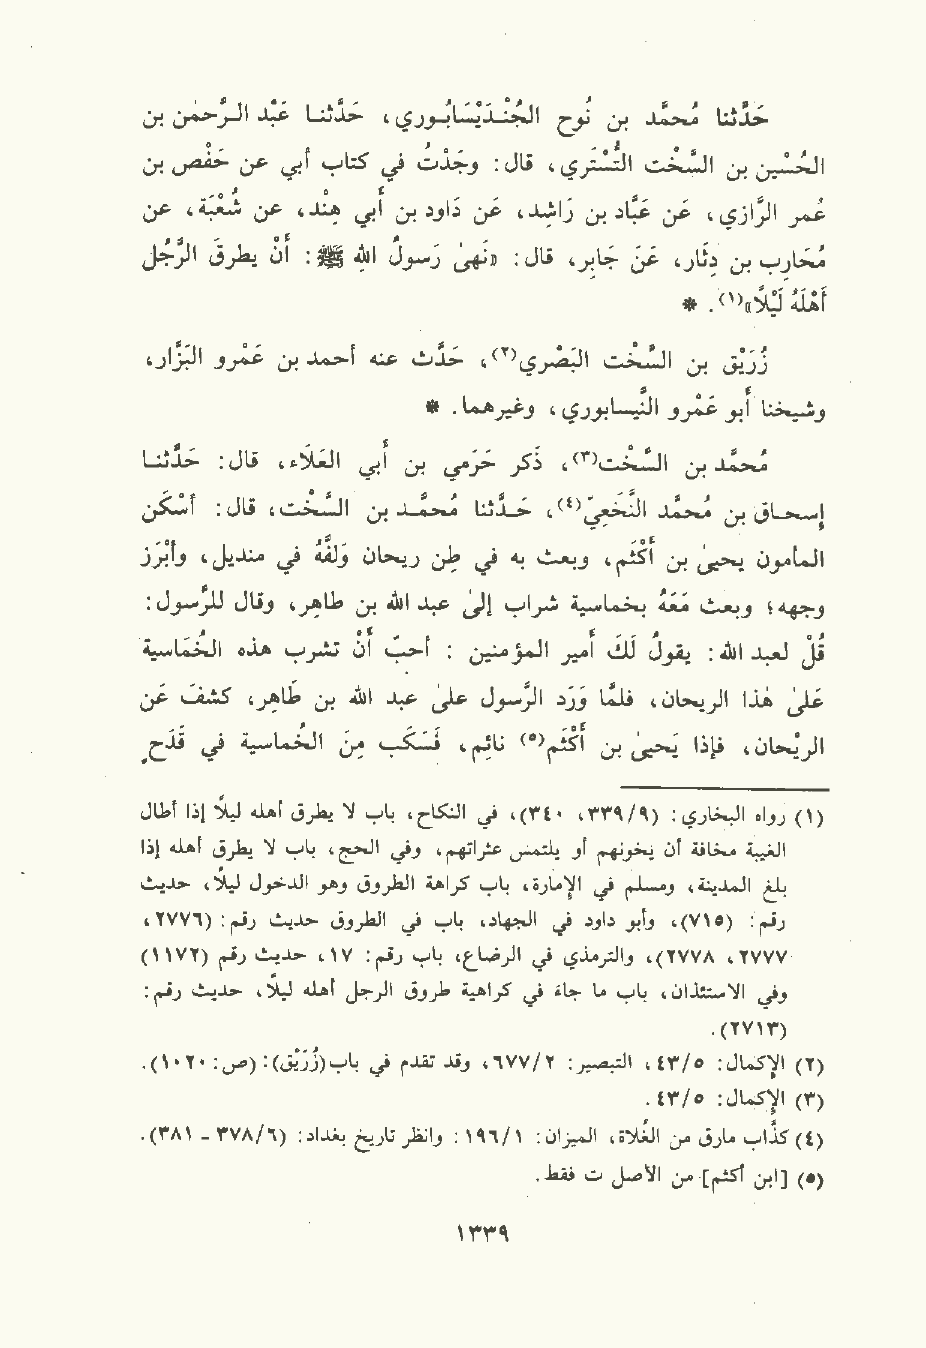 حَدَّثنا مُحمَّد بن نُوح الجُنْدَيْسَابُوري، حَدَّثنا عَبْد الرَّحمٰن بن
الحُسَين بن السَّخْت التُّسْتَري، قال: وَجَدْتُ في كتاب أبي عن حَفْص بن
عُمر الرَّازي، عَن عَبَّاد بن رَاشد، عَن دَاود بن أبي هِنْد، عن شُعْبَة، عن
مُحَارِب بن دِثَار، عَن جَابِر، قال: «نَهىٰ رَسولُ الله ﷺ: أنْ يطرقَ الرَّجُل
أَهلَهُ لَيْلاً»(١). *
زُرَيْق بن السَّخْت البَصْري(٢)، حَدَّث عنه أحمد بن عَمْرو البَزَّار،
وشيخنا أبو عَمْرو النَّيسابوري، وغيرهما. *
مُحمَّد بن السَّخْت(٣)، ذكر حَرَمي بن أبي العَلاَء، قال: حَدَّثنا
إسحاق بن مُحمَّد النَّخَعِيّ(٤)، حَدَّثنا مُحمَّد بن السَّخْت، قال: أَسْكَن
المأمون يحيىٰ بن أَكْثَم، وبعث به في طِن ريحان وَلَفَّهُ في منديل، وأبْرَز
وجهه؛ وبعث مَعَهُ بخماسية شراب إلىٰ عبد الله بن طاهر، وقال للرَّسول:
قُلْ لعبد الله: يقولُ لَكَ أمير المؤمنين: أحبّ أنْ تشرب هذه الخُمَاسية
عَلىٰ هَذا الريحان، فلمَّا وَرَد الرَّسول علىٰ عبد الله بن طَاهر، كشفَ عَن
الريْحان، فإذا يَحيىٰ بن أَكْثَم(٥) نائم، فَسَكَب مِن الخُماسية في قَدَح.
(١) رواه البخاري: (٩/٣٣٩، ٣٤٠)، في النكاح، باب لا يطرق أهله ليلاً إذا أطال
الغيبة مخافة أن يخونهم أو يلتمس عثراتهم، وفي الحج، باب لا يطرق أهله إذا
بلغ المدينة، ومسلم في الإمارة، باب كراهة الطروق وهو الدخول ليلاً، حديث
رقم: (٧١٥)، وأبو داود في الجهاد، باب في الطروق حديث رقم: (٢٧٧٦،
٢٧٧٧، ٢٧٧٨)، والترمذي في الرضاع، باب رقم: ١٧، حديث رقم (١١٧٢)
وفي الاستئذان، باب ما جاء في كراهية طروق الرجل أهله ليلاً، حديث رقم:
(٢٧١٣).
(٢) الإكمال: ٥/٤٣، التبصير: ٢/٦٧٧، وقد تقدم في باب(زُرَيْق): (ص: ١٠٢٠).
(٣) الإكمال: ٥/٤٣.
(٤) كذَّاب مارق من الغُلاة، الميزان: ١/١٩٦: وانظر تاريخ بغداد: (٦/٣٧٨ - ٣٨١).
(٥) [ابن أكثم] من الأصل ت فقط.
١٣٣٩